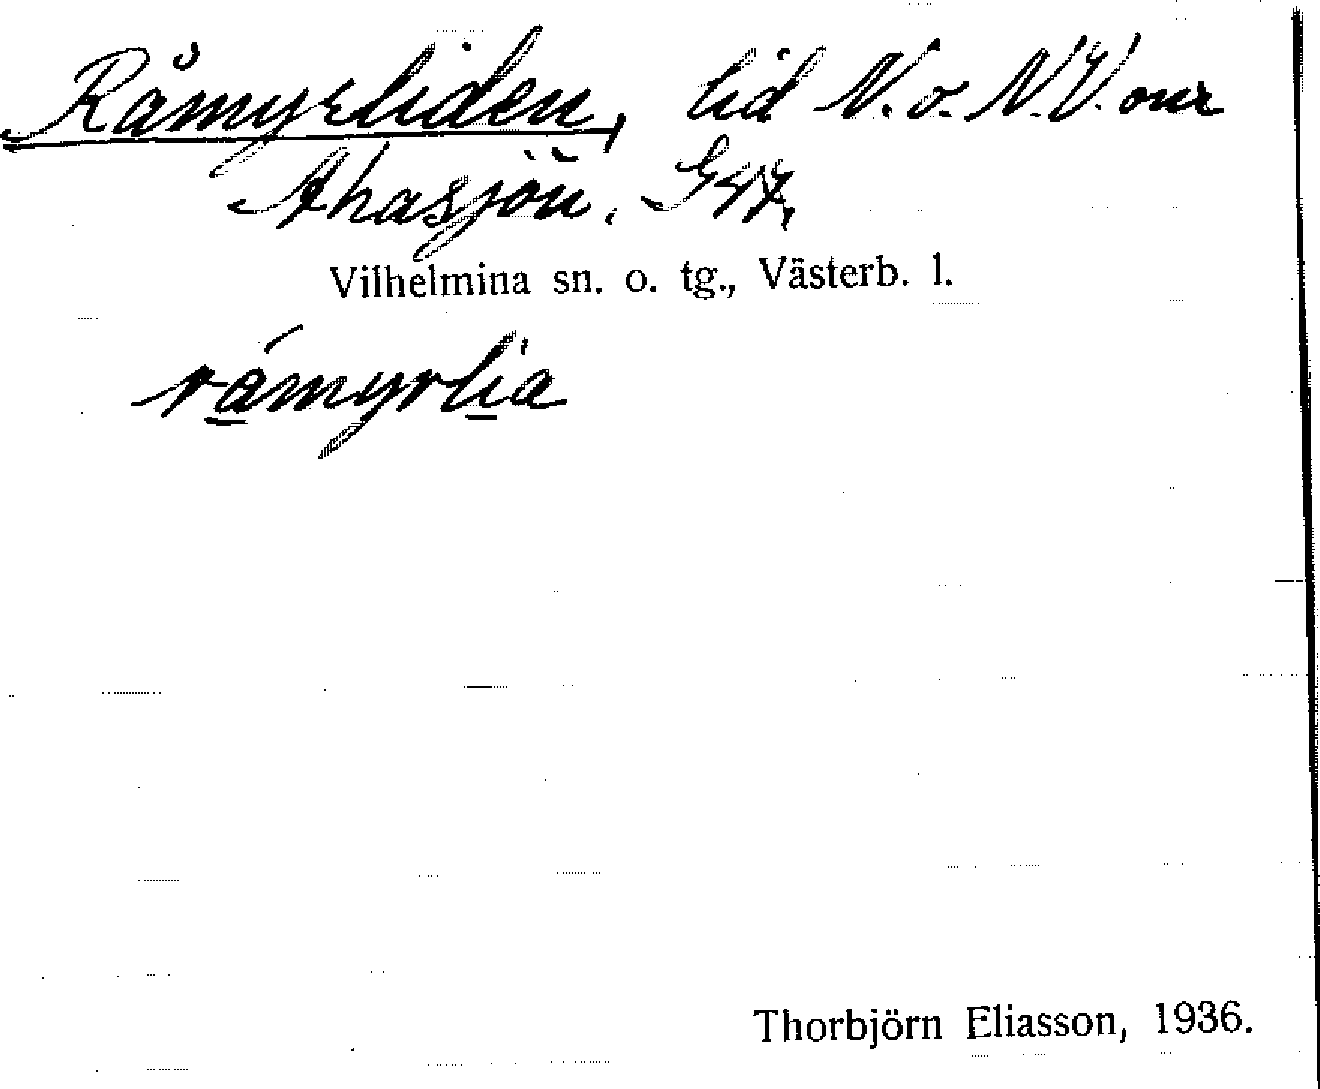 Råmyrliden, lid N. o. N.V. om
Ahasjön. G47.
Vilhelmina sn. o. tg., Västerb. l.
råmyrlia
Thorbjörn Eliasson, 1936.